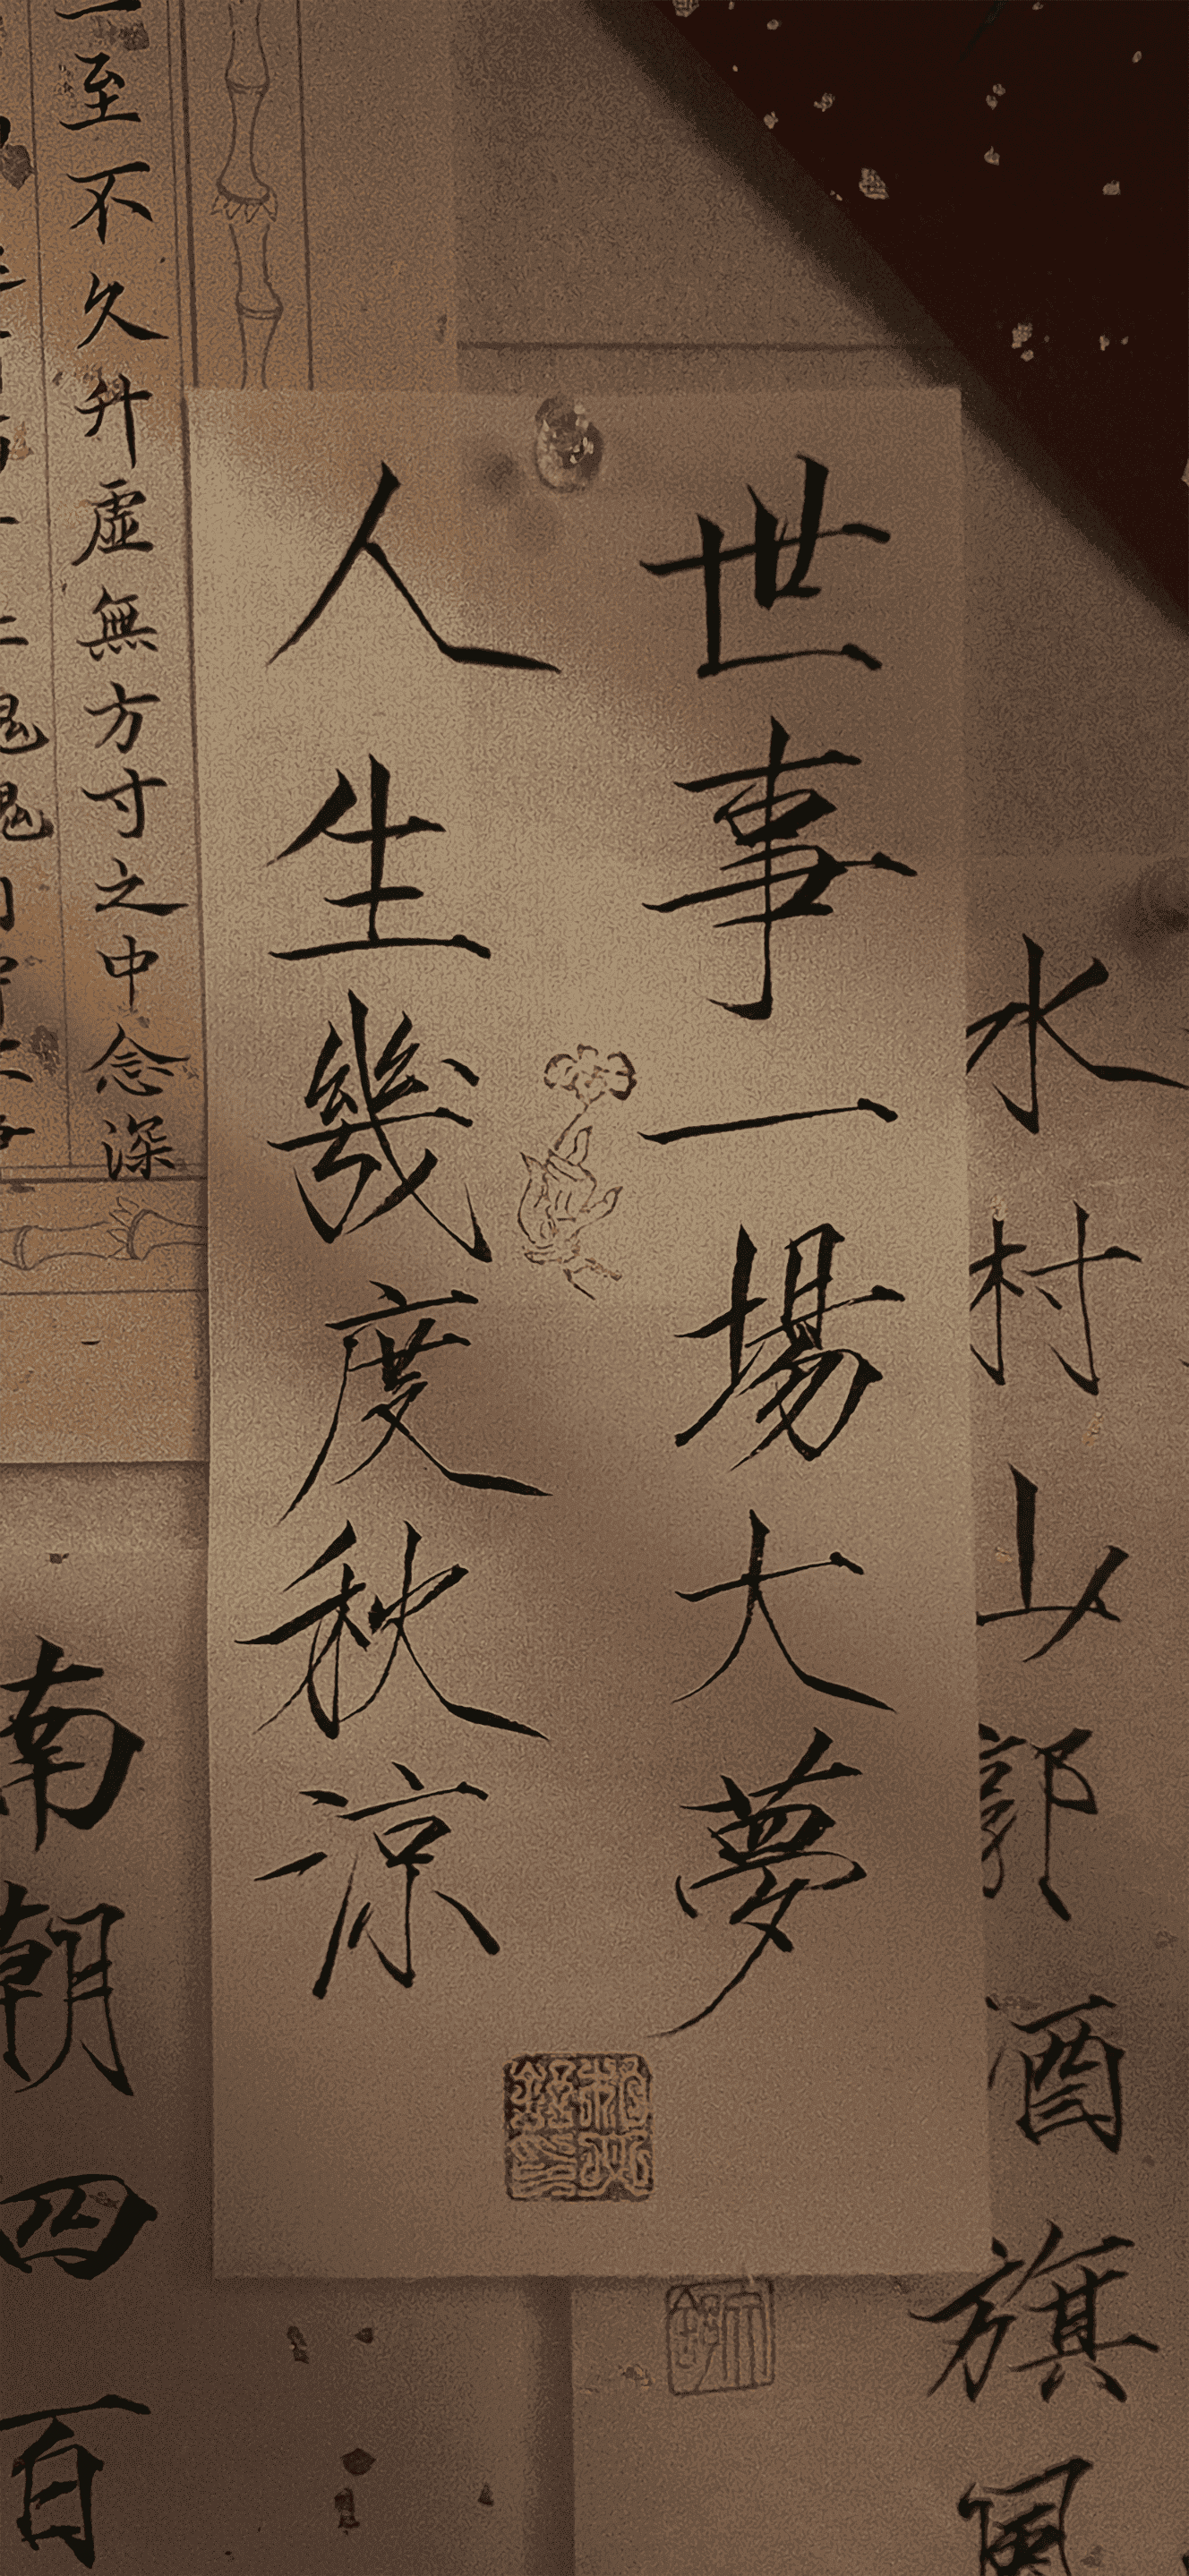 世事一場大夢
人生幾度秋涼
水村山郭酒旗風
至不久升虛無方寸之中念深
南朝四百